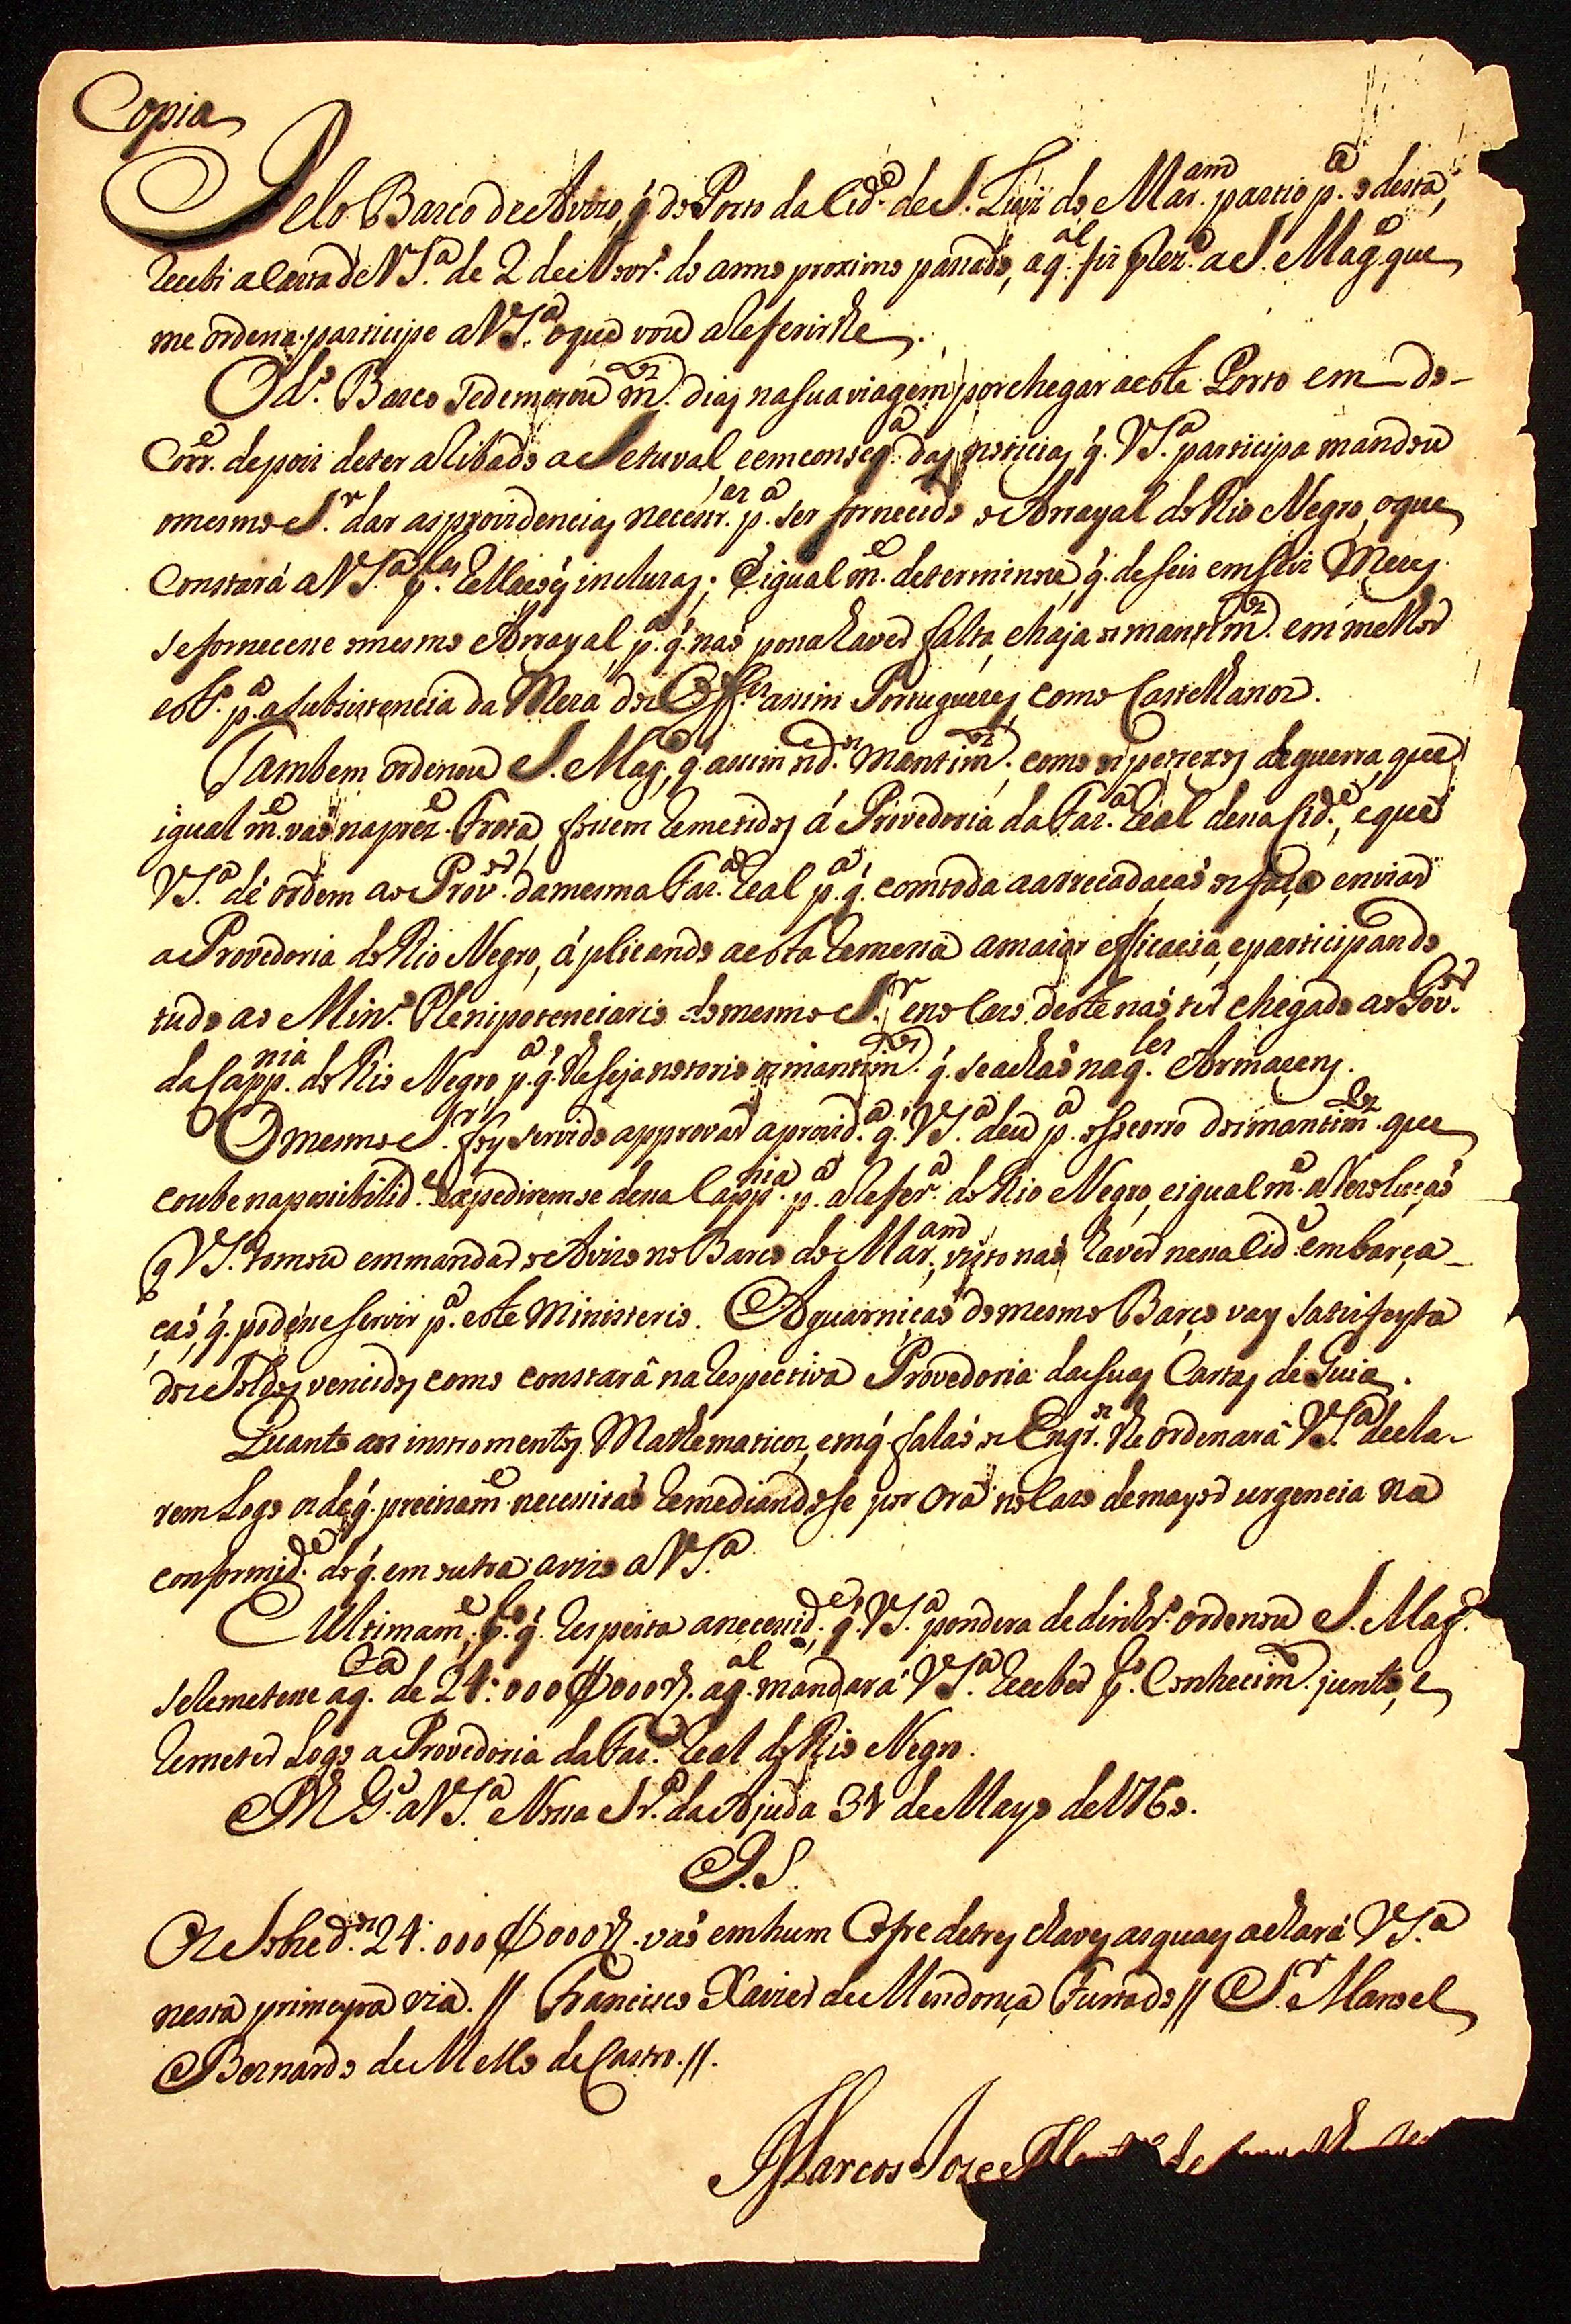 Copia
Pelo Barco de Avizo, q̃. do Porto da Cid.e de S. Luiz do Mar.am partio p.a o desta,
recebi a Carta de V S.a de 2 de Novr.o do anno proximo passado, a q.al fiz prez.e a S. Mag.e que
me ordena participe a V S.a o que vou a referirlhe.
O d.o Barco se demorou m.tos dias na sua viagem por chegar a este Porto em do
Corr.e depois de ter alibado a Setuval, e em conseq.a das noticias q̃. V S.a participa mandou
o mesmo S.r dar as providencias necessr.as p.a ser fornecido o Arrayal do Rio Negro, o que
Constará a V S.a p.las Rellaçoẽs incluzas; E igual m.e determinou, q̃. de seis em seis Mezes
se fornecesse o mesmo Arrayal, p.a q̃. naõ possa haver falta, e haja os mantim.tos em melhor
est.o p.a a subsistencia da Meza dos Off.es assim Portuguezes, como Castelhanos.
Tambem ordenou S. Mag.e, q̃. assim os d.os Mantim.tos, como os petrexos de guerra, que
igual m.e vaõ na prez.e Frota, fossem remetidos á Provedoria da Faz.a Real dessa Cid.e, e que
V S.a dé ordem ao Prov.or da mesma Faz.a Real p.a q̃. com toda a arrecadaçaõ os faça enviar
a Provedoria do Rio Negro, áplicando a esta remessa a maior efficacia, e participando
tudo ao Min.o Plenipotenciario do mesmo S.r e no Cazo deste naõ ter chegado ao Gov.or
da Capp.nia do Rio Negro, p.a q̃. lhe seja notorio os mantim.tos q̃. se achaõ naq.les Armazens.
O mesmo S.r foy servido approvar a provid.a q̃. V S.a deu p.a o socorro dos mantim.tos que
coube na possibilid.e expediremse dessa Capp.nia p.a a refer.a do Rio Negro, e igual m.e a Rezoluçaõ
q̃ V S.a tomou em mandar o Avizo no Barco do Mar.am, visto naõ haver nessa Cid.e embarca-
çaõ, q̃. podésse servir p.a este Ministerio. A guarniçaõ do mesmo Barco vay satisfeyta
dos Soldos vencidos como constará na respectiva Provedoria das suas Cartas de Guia.
Quanto aos instromentos Mathematicos, em q̃. falaõ os Engr.os lhe ordenará V S.a decla-
rem Logo os de q̃. precizam.e necessitaõ remediandosse por ora no Cazo de mayor urgencia na
conformid.e do q̃. em outra avizo a V S.a
Ultimam.e, p.lo q̃. respeita a necessid.e, q̃. V S.a pondera de dinhr.o ordenou S. Mag.e
se remetesse a q.tia de 24:000$000 r̃. a q.al mandará V S.a receber p.lo Conhecim.to junto, e
remeter Logo a Provedoria da Faz.a Real do Rio Negro.
D.s G.e a V S.a Nossa Sr.a da Ajuda 31 de Mayo de 1760.
P.S.
Os Sobred.os 24:000$000 r̃. vaõ em hum Cofre de tres chaves as quaes achará V S.a
nesta primeyra via. // Francisco Xavier de Mendonça Furtado // S.r Manoel
Bernardo de Mello de Castro. //.
Marcos Joze